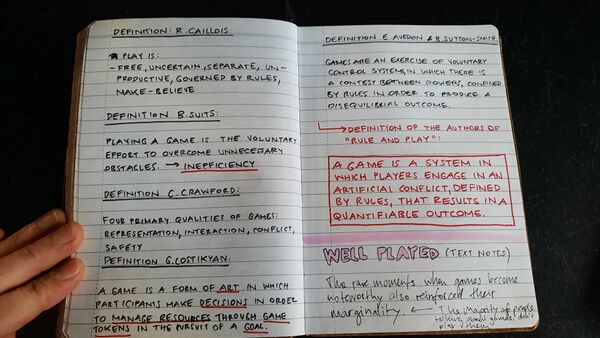 DEFINITION: R. CAILLOIS
PLAY IS:
- FREE, UNCERTAIN, SEPARATE, UN-
PRODUCTIVE, GOVERNED BY RULES,
MAKE-BELIEVE
DEFINITION B.SUITS:
PLAYING A GAME IS THE VOLUNTARY
EFFORT TO OVERCOME UNNECESSARY
OBSTACLES. → INEFICIENCY
DEFINITION C. CRAWFORD:
FOUR PRIMARY QUALITIES OF GAMES:
REPRESENTATION, INTERACTION, CONFLICT,
SAFETY
DEFINITION G. COSTIKYAN:
A GAME IS A FORM OF ART IN WHICH
PARTICIPANTS MAKE DECISIONS IN ORDER
TO MANAGE RESOURCES THROUGH GAME
TOKENS IN THE PURSUIT OF A GOAL.
DEFINITION E. AVEDON & B. SUTTON-SMITH
GAMES ARE AN EXERCISE OF VOLUNTARY
CONTROL SYSTEMS, IN WHICH THERE IS
A CONTEST BETWEEN POWERS, CONFINED
BY RULES IN ORDER TO PRODUCE A
DISEQUILIBRIAL OUTCOME.
→ DEFINITION OF THE AUTHORS OF
"RULE AND PLAY":
A GAME IS A SYSTEM IN
WHICH PLAYERS ENGAGE IN AN
ARTIFICIAL CONFLICT, DEFINED
BY RULES, THAT RESULTS IN A
QUANTIFIABLE OUTCOME.
WELL PLAYED (TEXT NOTES)
The rare moments when games become
noteworthy also reinforced their
marginality. ← The majority of people
talking about games, don't
play them